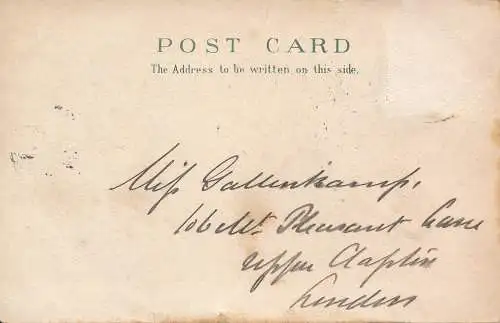 POST CARD
The Address to be written on this side.
Miss Gallenkamp.
106 Mt Pleasant Lane
Upper Clapton
London